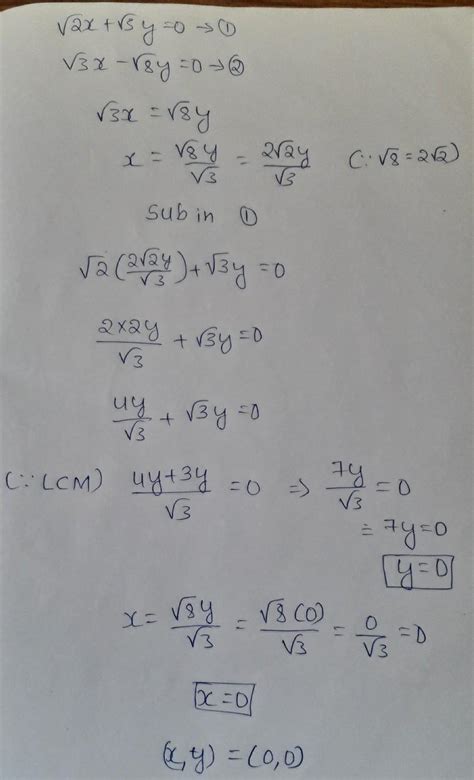 √2x + √3y = 0 → ①
√3x − √8y = 0 → ②
√3x = √8y
x = √8y/√3 = 2√2y/√3 (∵ √8 = 2√2)
Sub in ①
√2 (2√2y/√3) + √3y = 0
2×2y/√3 + √3y = 0
4y/√3 + √3y = 0
(∵ LCM) 4y+3y/√3 = 0 ⇒ 7y/√3 = 0
= 7y = 0
y = 0
x = √8y/√3 = √8(0)/√3 = 0/√3 = 0
x = 0
(x, y) = (0,0)